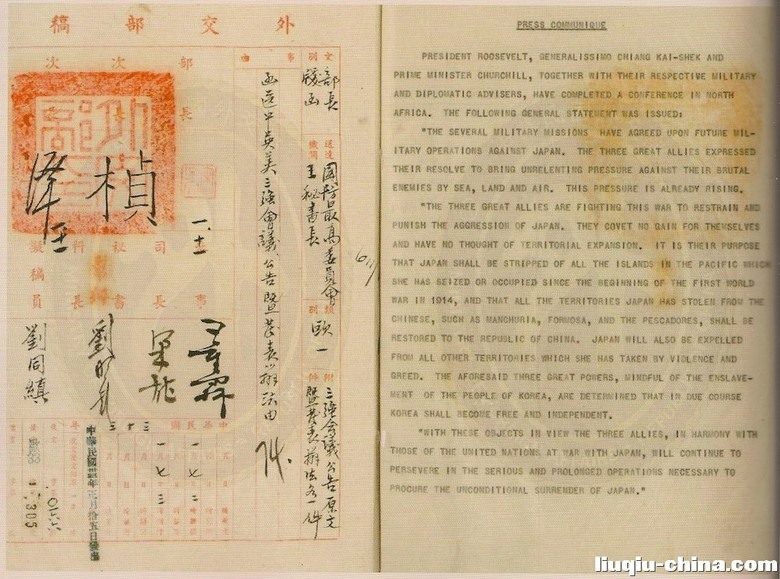 外交部稿
部長
函送中英美三強會議公告暨發表辦法由
國防最高委員會
王秘書長
三強會議公告原文
暨發表辦法各一件
楨
劉同縝
中華民國
PRESS COMMUNIQUE
PRESIDENT ROOSEVELT, GENERALISSIMO CHIANG KAI-SHEK AND
PRIME MINISTER CHURCHILL, TOGETHER WITH THEIR RESPECTIVE MILITARY
AND DIPLOMATIC ADVISERS, HAVE COMPLETED A CONFERENCE IN NORTH
AFRICA. THE FOLLOWING GENERAL STATEMENT WAS ISSUED:
"THE SEVERAL MILITARY MISSIONS HAVE AGREED UPON FUTURE MIL-
ITARY OPERATIONS AGAINST JAPAN. THE THREE GREAT ALLIES EXPRESSED
THEIR RESOLVE TO BRING UNRELENTING PRESSURE AGAINST THEIR BRUTAL
ENEMIES BY SEA, LAND AND AIR. THIS PRESSURE IS ALREADY RISING.
"THE THREE GREAT ALLIES ARE FIGHTING THIS WAR TO RESTRAIN AND
PUNISH THE AGGRESSION OF JAPAN. THEY COVET NO GAIN FOR THEMSELVES
AND HAVE NO THOUGHT OF TERRITORIAL EXPANSION. IT IS THEIR PURPOSE
THAT JAPAN SHALL BE STRIPPED OF ALL THE ISLANDS IN THE PACIFIC WHICH
SHE HAS SEIZED OR OCCUPIED SINCE THE BEGINNING OF THE FIRST WORLD
WAR IN 1914, AND THAT ALL THE TERRITORIES JAPAN HAS STOLEN FROM THE
CHINESE, SUCH AS MANCHURIA, FORMOSA, AND THE PESCADORES, SHALL BE
RESTORED TO THE REPUBLIC OF CHINA. JAPAN WILL ALSO BE EXPELLED
FROM ALL OTHER TERRITORIES WHICH SHE HAS TAKEN BY VIOLENCE AND
GREED. THE AFORESAID THREE GREAT POWERS, MINDFUL OF THE ENSLAVE-
MENT OF THE PEOPLE OF KOREA, ARE DETERMINED THAT IN DUE COURSE
KOREA SHALL BECOME FREE AND INDEPENDENT.
"WITH THESE OBJECTS IN VIEW THE THREE ALLIES, IN HARMONY WITH
THOSE OF THE UNITED NATIONS AT WAR WITH JAPAN, WILL CONTINUE TO
PERSEVERE IN THE SERIOUS AND PROLONGED OPERATIONS NECESSARY TO
PROCURE THE UNCONDITIONAL SURRENDER OF JAPAN."
liuqiu-china.com